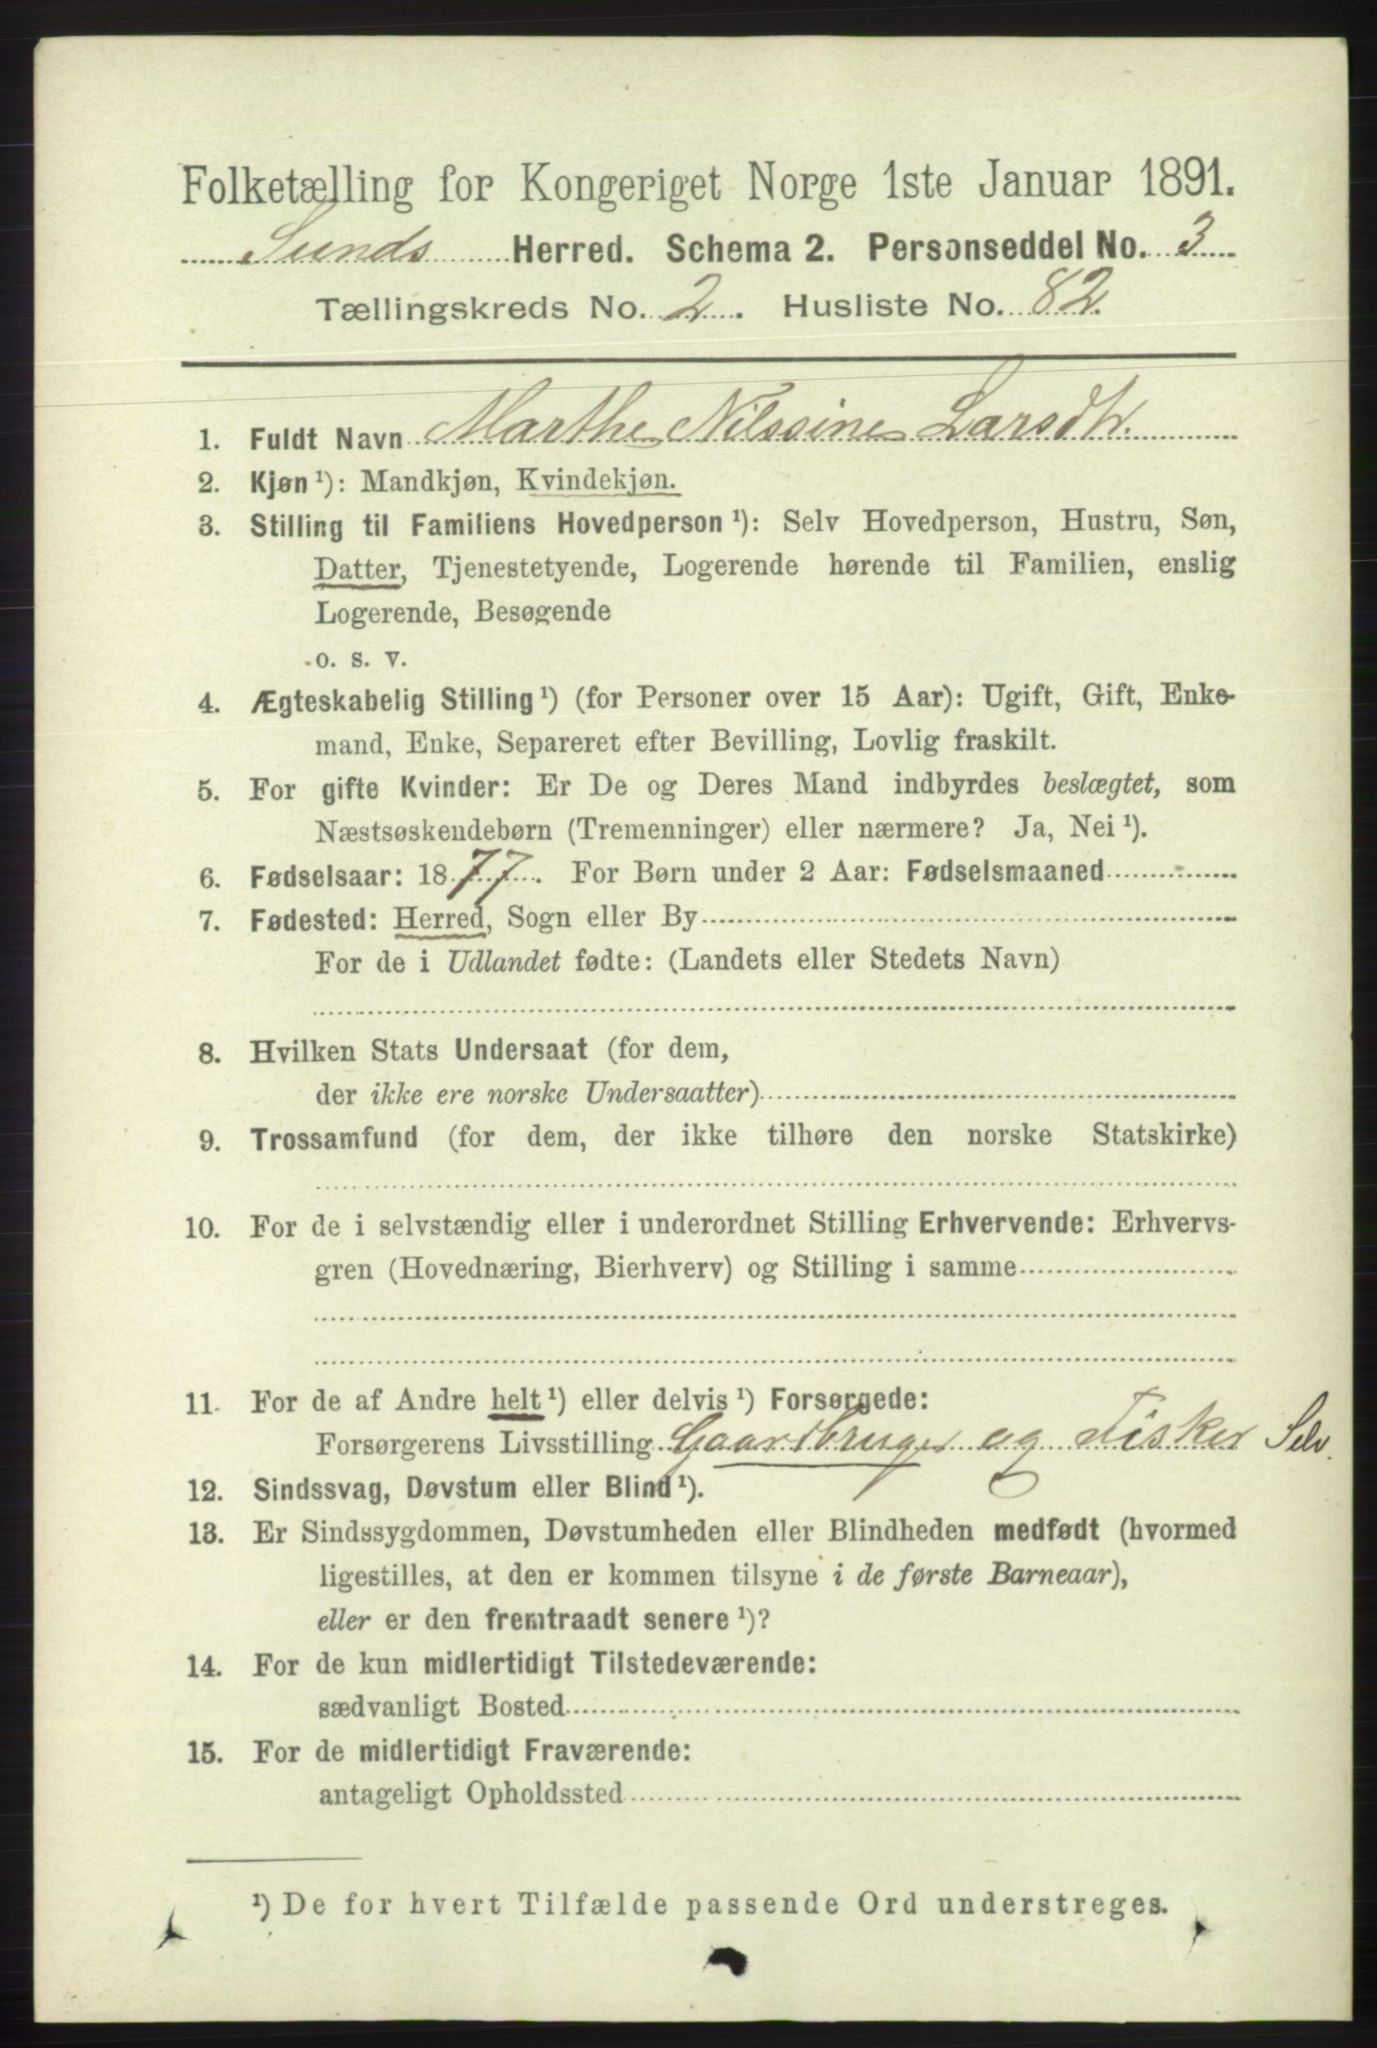 Folketælling for Kongeriget Norge 1ste Januar 1891.
Sunds Herred. Schema 2. Personseddel No. 3
Tællingskreds No. 2. Husliste No. 82
1. Fuldt Navn Marthe Nilssine Larsdtr.
2. Kjøn ¹): Mandkjøn, Kvindekjøn.
3. Stilling til Familiens Hovedperson ¹): Selv Hovedperson, Hustru, Søn,
Datter, Tjenestetyende, Logerende hørende til Familien, enslig
Logerende, Besøgende
o. s. v.
4. Ægteskabelig Stilling ¹) (for Personer over 15 Aar): Ugift, Gift, Enke-
mand, Enke, Separeret efter Bevilling, Lovlig fraskilt.
5. For gifte Kvinder: Er De og Deres Mand indbyrdes beslægtet, som
Næstsøskendebørn (Tremenninger) eller nærmere? Ja, Nei ¹).
6. Fødselsaar: 1877. For Børn under 2 Aar: Fødselsmaaned
7. Fødested: Herred, Sogn eller By
For de i Udlandet fødte: (Landets eller Stedets Navn)
8. Hvilken Stats Undersaat (for dem,
der ikke ere norske Undersaatter)
9. Trossamfund (for dem, der ikke tilhøre den norske Statskirke)
10. For de i selvstændig eller i underordnet Stilling Erhvervende: Erhvervs-
gren (Hovednæring, Bierhverv) og Stilling i samme
11. For de af Andre helt ¹) eller delvis ¹) Forsørgede:
Forsørgerens Livsstilling Gaardbruger og Fisker Selv.
12. Sindssvag, Døvstum eller Blind ¹).
13. Er Sindssygdommen, Døvstumheden eller Blindheden medfødt (hvormed
ligestilles, at den er kommen tilsyne i de første Barneaar),
eller er den fremtraadt senere ¹)?
14. For de kun midlertidigt Tilstedeværende:
sædvanligt Bosted
15. For de midlertidigt Fraværende:
antageligt Opholdssted
¹) De for hvert Tilfælde passende Ord understreges.